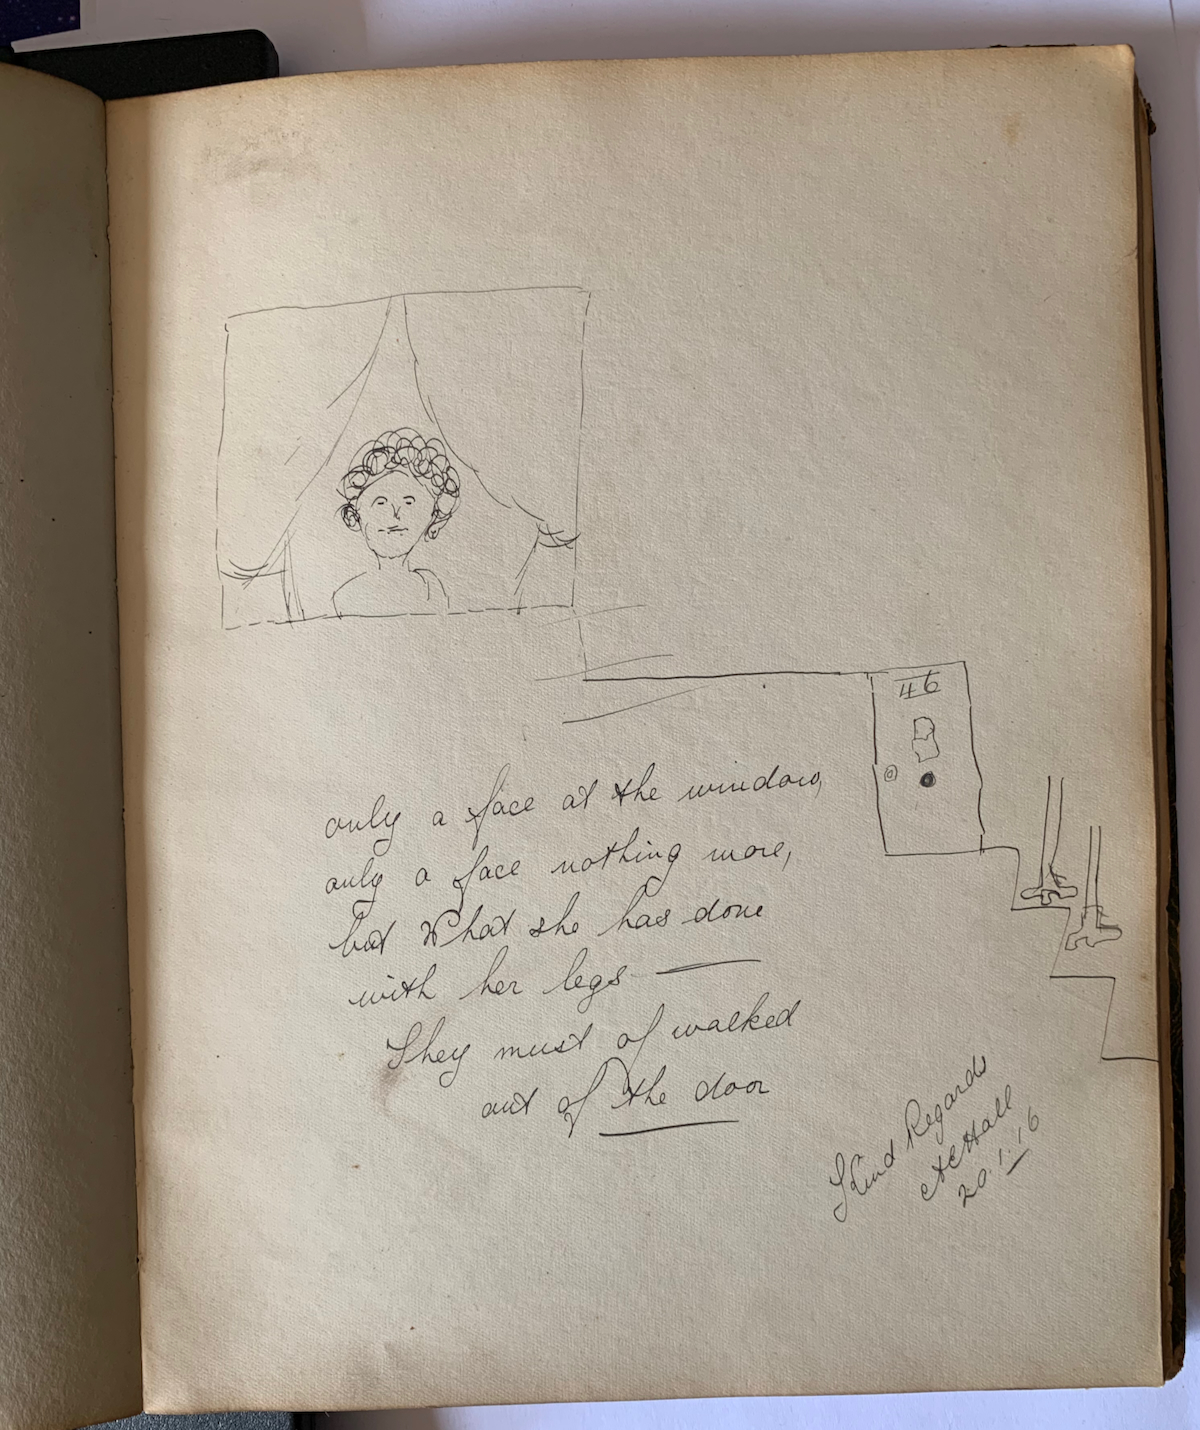 46
only a face at the window,
only a face nothing more,
but What she has done
with her legs —
They must of walked
out of the door
Kind Regards
ACHall
20.1.16